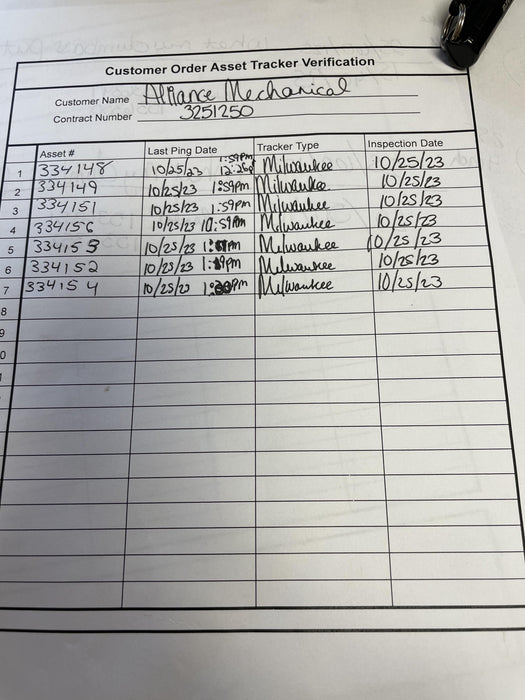 Customer Order Asset Tracker Verification
Customer Name Alliance Mechanical
Contract Number 3251250
Asset # Last Ping Date Tracker Type Inspection Date
1 334148 10/25/23 1:59pm Milwaukee 10/25/23
2 334149 10/25/23 1:59pm Milwaukee 10/25/23
3 334151 10/25/23 1:59pm Milwaukee 10/25/23
4 334156 10/25/23 Milwaukee 10/25/23
5 334155 10/25/23 Milwaukee 10/25/23
6 334152 10/25/23 Milwaukee 10/25/23
7 334154 10/25/23 Milwaukee 10/25/23
8
9
0
1